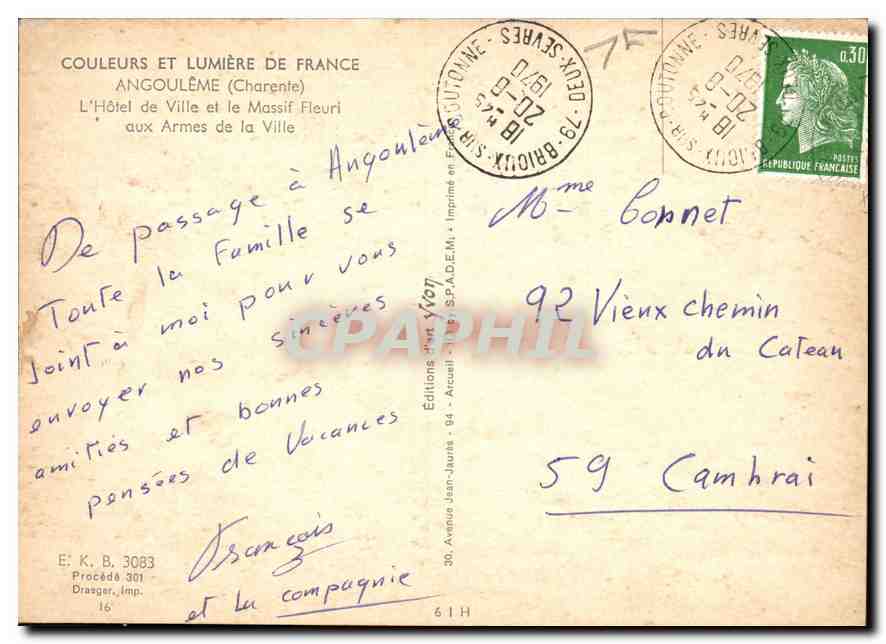 COULEURS ET LUMIÈRE DE FRANCE
ANGOULÊME (Charente)
L'Hôtel de Ville et le Massif Fleuri
aux Armes de la Ville
De passage à Angoulème
Toute la Famille se
Joint à moi pour vous
envoyer nos sincères
amitiés et bonnes
pensées de Vacances
François
et la compagnie
E. K. B. 3083
Procédé 301
Draeger, Imp.
16
61H
Éditions d'art Yvon
30, Avenue Jean-Jaurès - 94 - Arcueil
by S.P.A.D.E.M. • Imprimé en France
CPAPHIL
79 - BRIOUX-SUR-BOUTONNE - DEUX-SEVRES
18 H 45
20-8
1970
79 - BRIOUX-SUR-BOUTONNE - DEUX-SEVRES
18 H 45
20-8
1970
0,30
POSTES
REPUBLIQUE FRANCAISE
Mme Connet
92 Vieux chemin
du Cateau
59 Cambrai